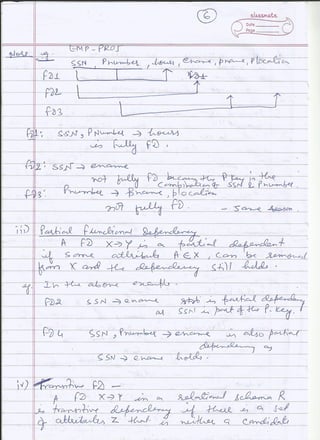 6
classmate
Date
Page
Note eg. EMP-PROJ
SSN, Pnumber, hours, Ename, pname, Plocation
FD1
FD2
FD3
FD1: SSN, PNumber → hours
is fully FD.
FD2: SSN → ename
not fully FD because the P key is the
combination of SSN & Pnumber.
FD3: Pnumber → Pname, plocation
not fully FD. - same reason.
iii) Partial Functional Dependency
A FD X→Y is a partial dependent
if some attribute A∈X, can be removed
from X and the dependency still holds.
eg. In the above example.
FD2 SSN → ename is partial dependency
as SSN is part of the P. Key.
FD4 SSN, Pnumber → ename is also partial
dependency as
SSN → ename holds.
iv) Transitive FD -
A FD X→Y in a relational schema R
is transitive dependency if there is a set
of attributes Z that is neither a candidate